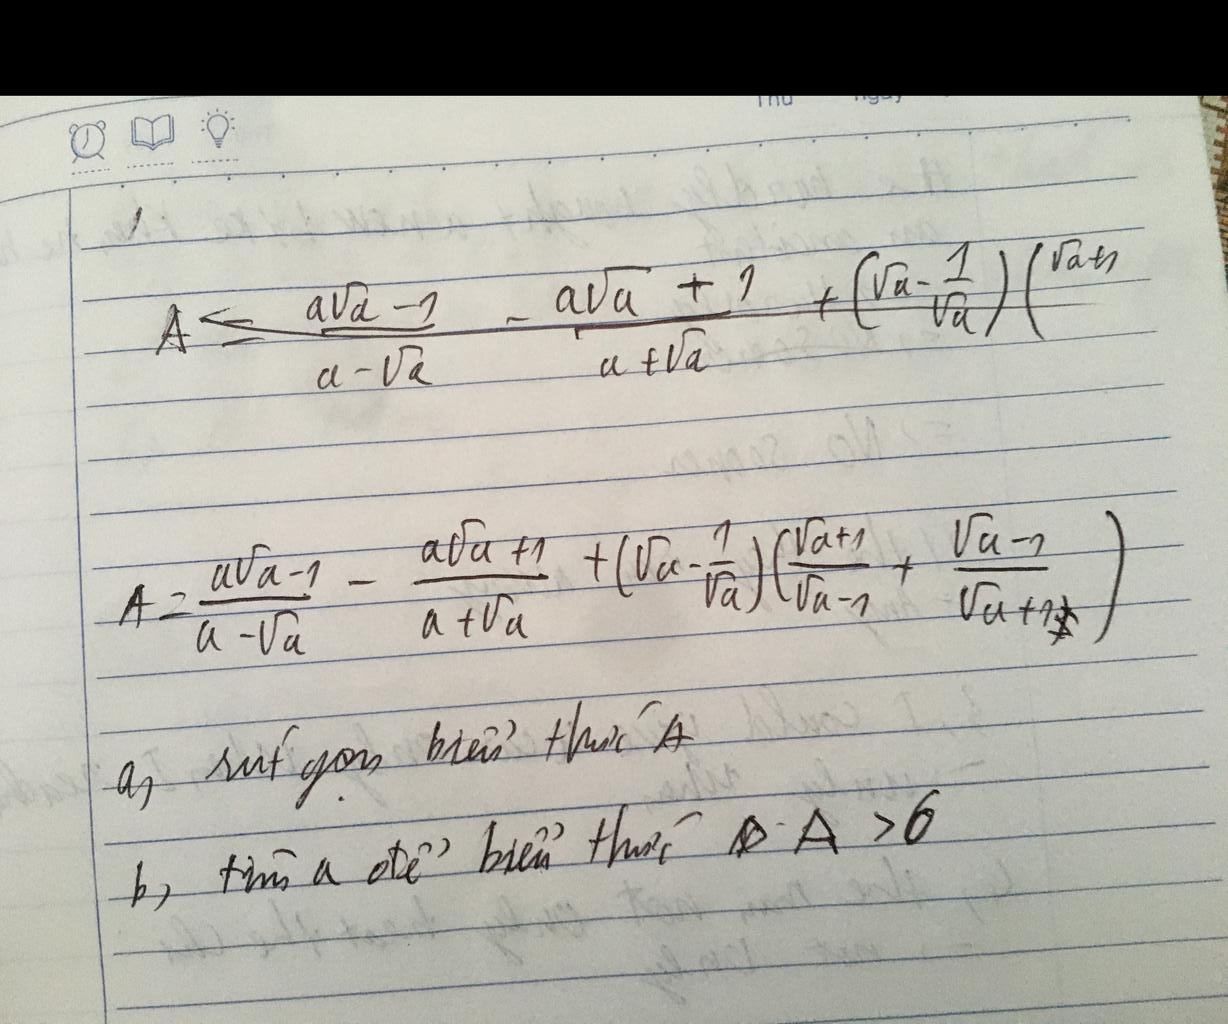 Thứ ngày
1
A = a√a - 1 / a - √a - a√a + 1 / a + √a + (√a - 1/√a) ( √a+1
A = a√a - 1 / a - √a - a√a + 1 / a + √a + (√a - 1/√a) ( √a+1 / √a-1 + √a-1 / √a+1 )
a, rút gọn biểu thức A
b, tìm a để biểu thức A > 6